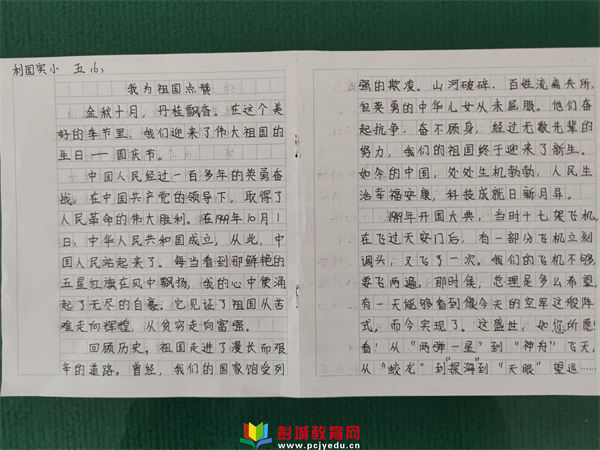 利国实小 五(6)
我为祖国点赞
金秋十月，丹桂飘香。在这个美
好的季节里，我们迎来了伟大祖国的
生日——国庆节。
中国人民经过一百多年的英勇奋
战，在中国共产党的领导下，取得了
人民革命的伟大胜利。在1949年10月1
日，中华人民共和国成立，从此，中
国人民站起来了。每当看到那鲜艳的
五星红旗在风中飘扬，我的心中便涌
起了无尽的自豪。它见证了祖国从苦
难走向辉煌，从贫穷走向富强。
回顾历史，祖国走进了漫长而艰
辛的道路。曾经，我们的国家饱受列
强的欺凌。山河破碎，百姓流离失所，
但英勇的中华儿女从未屈服。他们奋
起抗争，奋不顾身，经过无数先辈的
努力，我们的祖国终于迎来了新生。
如今的中国，处处生机勃勃，人民生
活幸福安康，科技成就日新月异。
1949年开国大典，当时十七架飞机，
在飞过天安门后，有一部分飞机立刻
调头，又飞了一次。我们的飞机不够
要飞两遍，那时候，总理是多么希望，
有一天能够看到像今天的空军这般阵
式，而今实现了。这盛世，如您所愿
看！从“两弹一星”到“神舟”飞天，
从“蛟龙”到“探海”到“天眼”望远……
彭城教育网
www.pcjyedu.cn